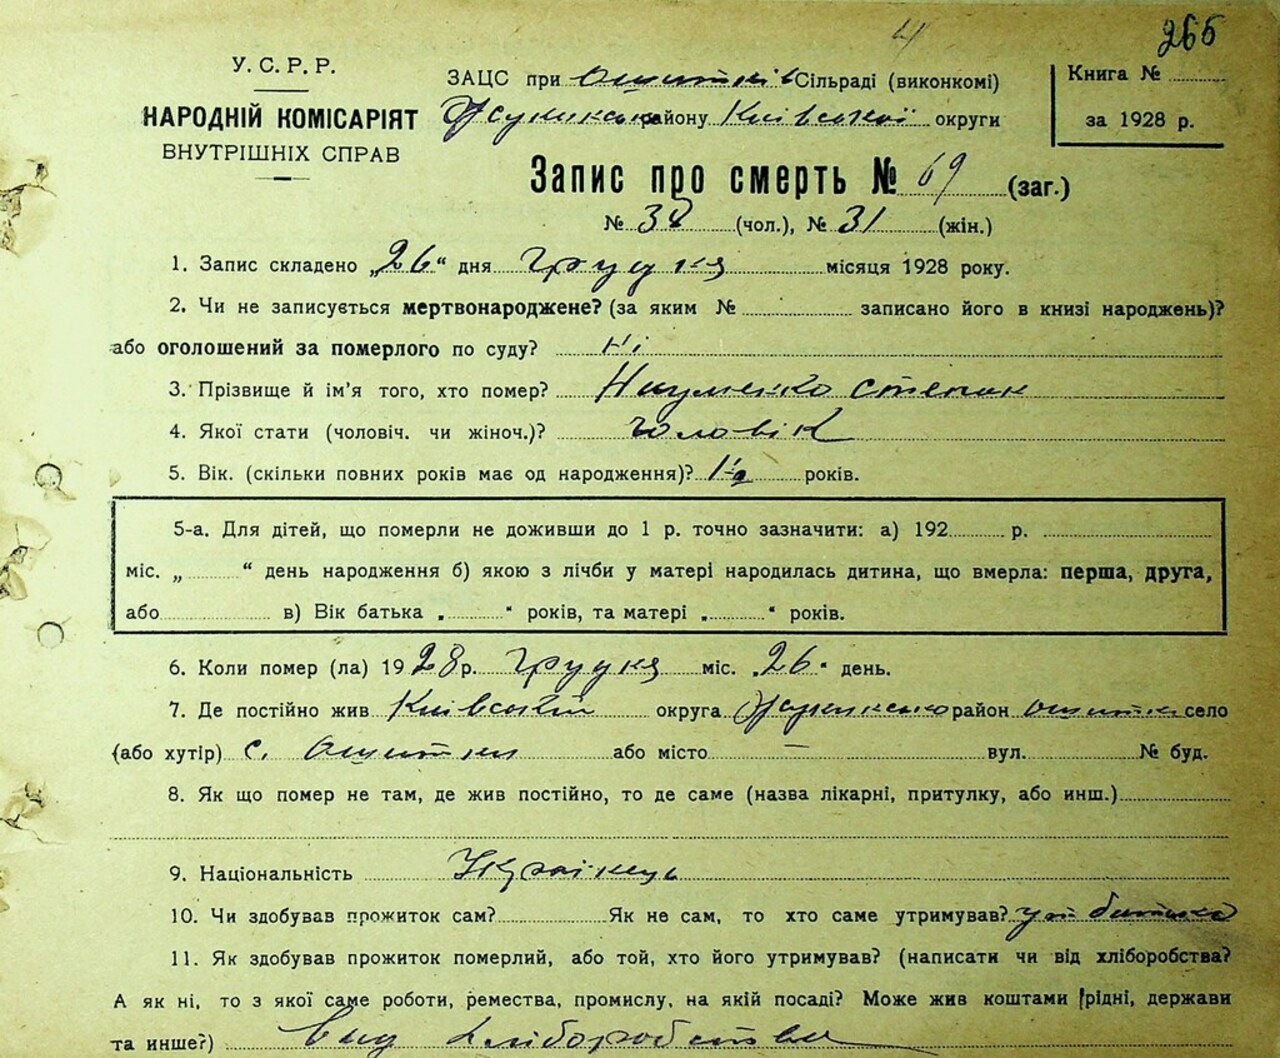 4
265
У. С. Р. Р.
НАРОДНІЙ КОМІСАРІЯТ
ВНУТРІШНІХ СПРАВ
ЗАЦС при Ошитків Сільраді (виконкомі)
району Київської округи
Книга №
за 1928 р.
Запис про смерть № 69 (заг.)
№ 38 (чол.), № 31 (жін.)
1. Запис складено „26“ дня грудня місяця 1928 року.
2. Чи не записується мертвонароджене? (за яким № записано його в книзі народжень)?
або оголошений за померлого по суду? Ні
3. Прізвище й ім’я того, хто помер? Науменко Степан
4. Якої стати (чоловіч. чи жіноч.)? чоловік
5. Вік. (скільки повних років має од народження)? 1½ років.
5-а. Для дітей, що померли не доживши до 1 р. точно зазначити: а) 192 р.
міс. „ “ день народження б) якою з лічби у матері народилась дитина, що вмерла: перша, друга,
або в) Вік батька „ “ років, та матері „ “ років.
6. Коли помер (ла) 1928 р. грудня міс. „26“ день.
7. Де постійно жив Київський округа район Ошитки село
(або хутір) с. Ошитки або місто — вул. № буд.
8. Як що помер не там, де жив постійно, то де саме (назва лікарні, притулку, або инш.)
9. Національність Українець
10. Чи здобував прожиток сам? Як не сам, то хто саме утримував? у батька
11. Як здобував прожиток померлий, або той, хто його утримував? (написати чи від хліборобства?
А як ні, то з якої саме роботи, ремества, промислу, на якій посаді? Може жив коштами рідні, держави
та инше?) Вид хліборобства